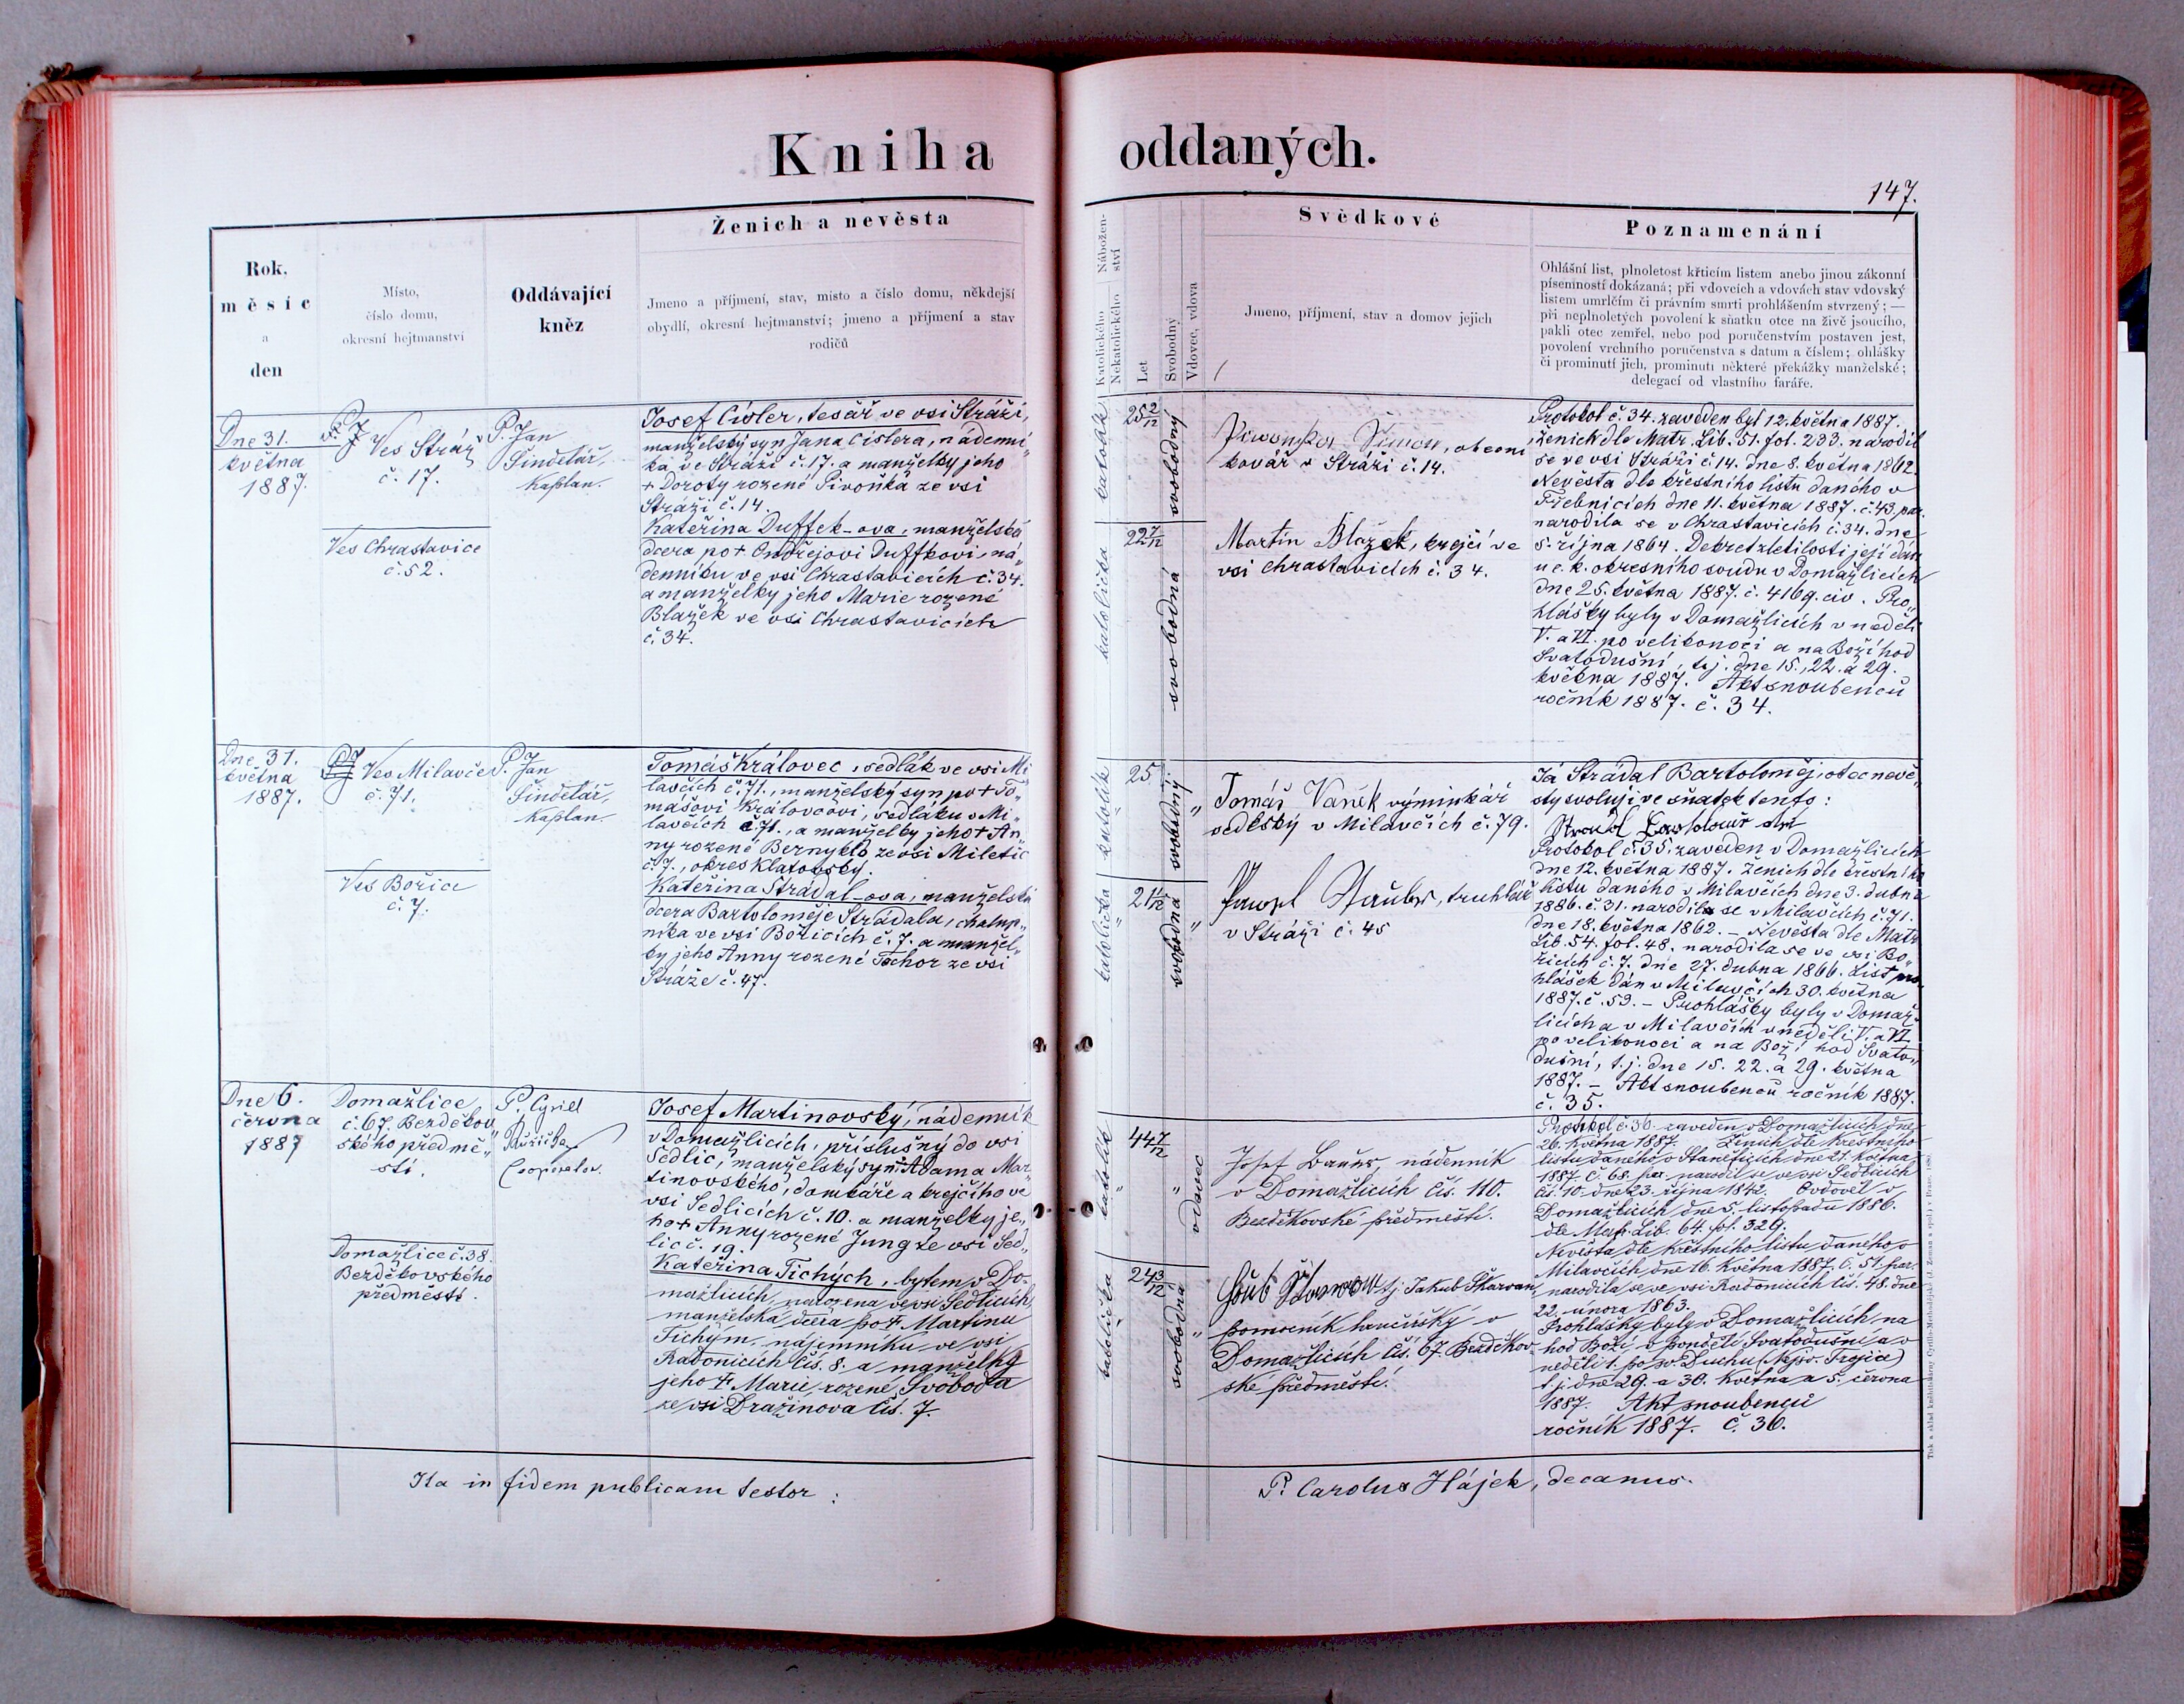 Kniha oddaných.
147.
Rok,
měsíc
a
den
Místo,
číslo domu,
okresní hejtmanství
Oddávající
kněz
Ženich a nevěsta
Jmeno a příjmení, stav, místo a číslo domu, někdejší
obydlí, okresní hejtmanství; jmeno a příjmení a stav
rodičů
Nábožen-
ství
Katolického
Nekatolického
Let
Svobodný
Vdovec, vdova
Svědkové
Jmeno, příjmení, stav a domov jejich
Poznamenání
Ohlášní list, plnoletost křticím listem anebo jinou zákonní
písemností dokázaná; při vdovcích a vdovách stav vdovský
listem umrlčím či právním smrti prohlášením stvrzený; —
při neplnoletých povolení k sňatku otce na živě jsoucího,
pakli otec zemřel, nebo pod poručenstvím postaven jest,
povolení vrchního poručenstva s datum a číslem; ohlášky
či prominutí jich, prominutí některé překážky manželské;
delegací od vlastního faráře.
Dne 31.
května
1887.
Ves Stráž
č. 17.
Ves Chrastavice
č. 52.
P. Jan
Šindelář,
kaplan.
Josef Císler, tesař ve vsi Stráži,
manželský syn Jana Císlera, nádenní„
ka ve Stráži č. 17. a manželky jeho
+ Doroty rozené Sivoňka ze vsi
Stráži č. 14.
Kateřina Duffek-ova, manželská
dcera po + Ondřejovi Duffkovi, ná„
denníku ve vsi Chrastavicích č. 34.
a manželky jeho Marie rozené
Blažek ve vsi Chrastavicích
č. 34.
katolík
25 2/12
svobodný
katolička
22 7/12
svobodná
Šimon, obecní
kovář v Stráži č. 14.
Martin Blažek, krejčí ve
vsi Chrastavicích č. 34.
Protokol č. 34. zaveden byl 12. května 1887.
Ženich dle Matr. Lib. 51. fol. 283. narodil
se ve vsi Stráži č. 14. dne 8. května 1862.
Nevěsta dle křestního listu daného v
Třebnicích dne 11. května 1887. č. 43. par.
narodila se v Chrastavicích č. 34. dne
5. října 1864. Dekret zletilosti její dán
u c. k. okresního soudu v Domažlicích
dne 25. května 1887. č. 4169. civ. Pro„
hlášky byly v Domažlicích v neděli
V. a VI. po velikonoci a na Boží hod
Svatodušní, t.j. dne 15., 22. a 29.
května 1887. Akt snoubenců
ročník 1887. č. 34.
Dne 31.
května
1887.
Ves Milavče
č. 71.
Ves Bořice
č. 7.
P. Jan
Šindelář,
kaplan.
Tomáš Královec, sedlák ve vsi Mi
lavčích č. 71., manželský syn po + To„
mášovi Královcovi, sedláku v Mi„
lavčích č. 71., a manželky jeho + An„
ny rozené Bernykls ze vsi Miletic
č. 7., okres Klatovský.
Kateřina Strádal-ova, manželská
dcera Bartoloměje Strádala, chalup„
níka ve vsi Bořicích č. 7. a manžel„
ky jeho Anny rozené Tochor ze vsi
Stráže č. 47.
katolík
25
svobodný
katolička
21 1/12
svobodná
Tomáš Vaněk výminkář
sedlský v Milavčích č. 79.
truhlář
v Stráži č. 45
Já Strádal Bartoloměj, otec nevě„
sty svoluji ve sňatek tento:
Protokol č. 35. zaveden v Domažlicích
dne 12. května 1887. Ženich dle křestního
listu daného v Milavčích dne 3. dubna
1886. č. 31. narodil se v Milavčích č. 71.
dne 18. května 1862. – Nevěsta dle Matr.
Lib. 54. fol. 48. narodila se ve vsi Bo„
řicích č. 7. dne 27. dubna 1866. List pro„
hlášek dán v Milavčích 30. května
1887. č. 59. – Prohlášky byly v Domaž„
licích a v Milavčích v neděli V. a VI.
po velikonoci a na Boží hod Svato„
dušní, t.j. dne 15. 22. a 29. května
1887. – Akt snoubenců ročník 1887.
č. 35.
Dne 6.
června
1887
Domažlice
č. 67. Bezděkov„
ského předmě„
stí.
Domažlice č. 38.
Bezděkovského
předměstí.
P. Cyrill
Růžička
Cooperator.
Josef Martinovský, nádenník
v Domažlicích, příslušný do vsi
Sedlic, manželský syn Adama Mar„
tinovského, domkáře a krejčího ve
vsi Sedlicích č. 10. a manželky je„
ho + Anny rozené Jung ze vsi Sed„
lic č. 19.
Kateřina Tichých, bytem v Do-
mažlicích, narozena ve vsi Sedlicích,
manželská dcera po + Martinu
Tichým, nájemníku ve vsi
Radonicích čís. 8. a manželky
jeho + Marie, rozené Svoboda
ze vsi Dražinova čís. 7.
katolík
44 7/12
vdovec
katolička
24 3/12
svobodná
Josef nádenník
v Domažlicích čís. 110.
Bezděkovské předměstí.
tj. Jakub Skarvan,
pomocník hančířský v
Domažlicích čís. 67. Bezděkov-
ské předměstí.
Protokol č. 36. zaveden v Domažlicích dne
26. května 1887. Ženich dle křestního
listu daného v Staněticích dne 21. května
1887. č. 68. par. narodil se ve vsi Sedlicích
čís. 10. dne 23. října 1842. Ovdověl v
Domažlicích dne 5. listopadu 1886.
dle Matr. Lib. 64. fol. 329.
Nevěsta dle křestního listu daného v
Milavčích dne 16. května 1887. č. 51. par.
narodila se ve vsi Radonicích čís. 48. dne
22. února 1863.
Prohlášky byly v Domažlicích na
hod Boží, v pondělí Svatodušní a v
neděli 1. po sv. Duchu (Nejsv. Trojice)
t. j. dne 29. a 30. května a 5. června
1887. Akt snoubenců
ročník 1887. č. 36.
Ita in fidem publicam testor: P. Carolus Hájek, decanus.